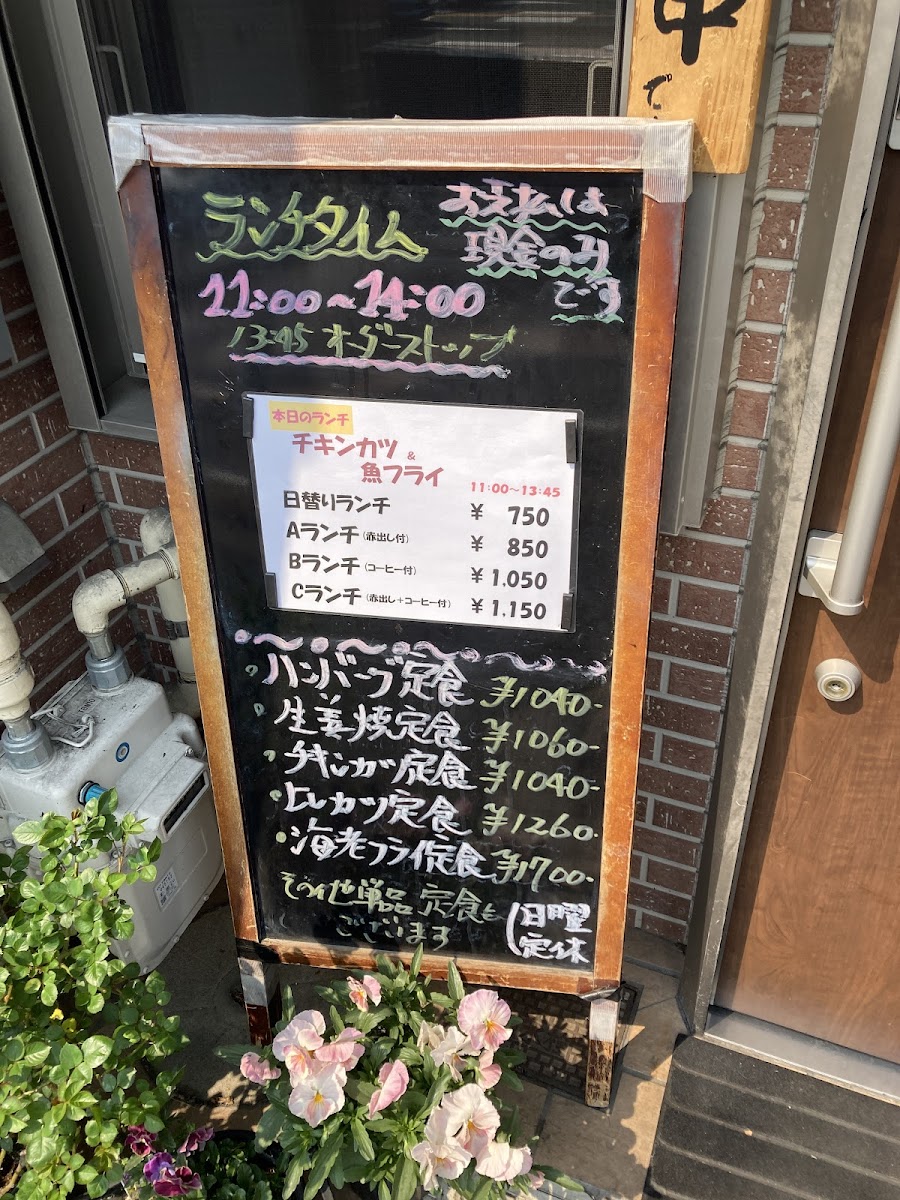 ランチタイム
お支払は
現金のみ
です
11:00~14:00
13:45 オーダーストップ
本日のランチ
チキンカツ
&
魚フライ
11:00〜13:45
日替りランチ ¥ 750
Aランチ(赤出し付) ¥ 850
Bランチ(コーヒー付) ¥ 1.050
Cランチ(赤出し+コーヒー付) ¥ 1.150
ハンバーグ定食 ¥1040-
生姜焼定食 ¥1060-
チキンカツ定食 ¥1040-
ヒレカツ定食 ¥1260-
海老フライ定食 ¥1700-
その他単品 定食も
ございます
(日曜
定休